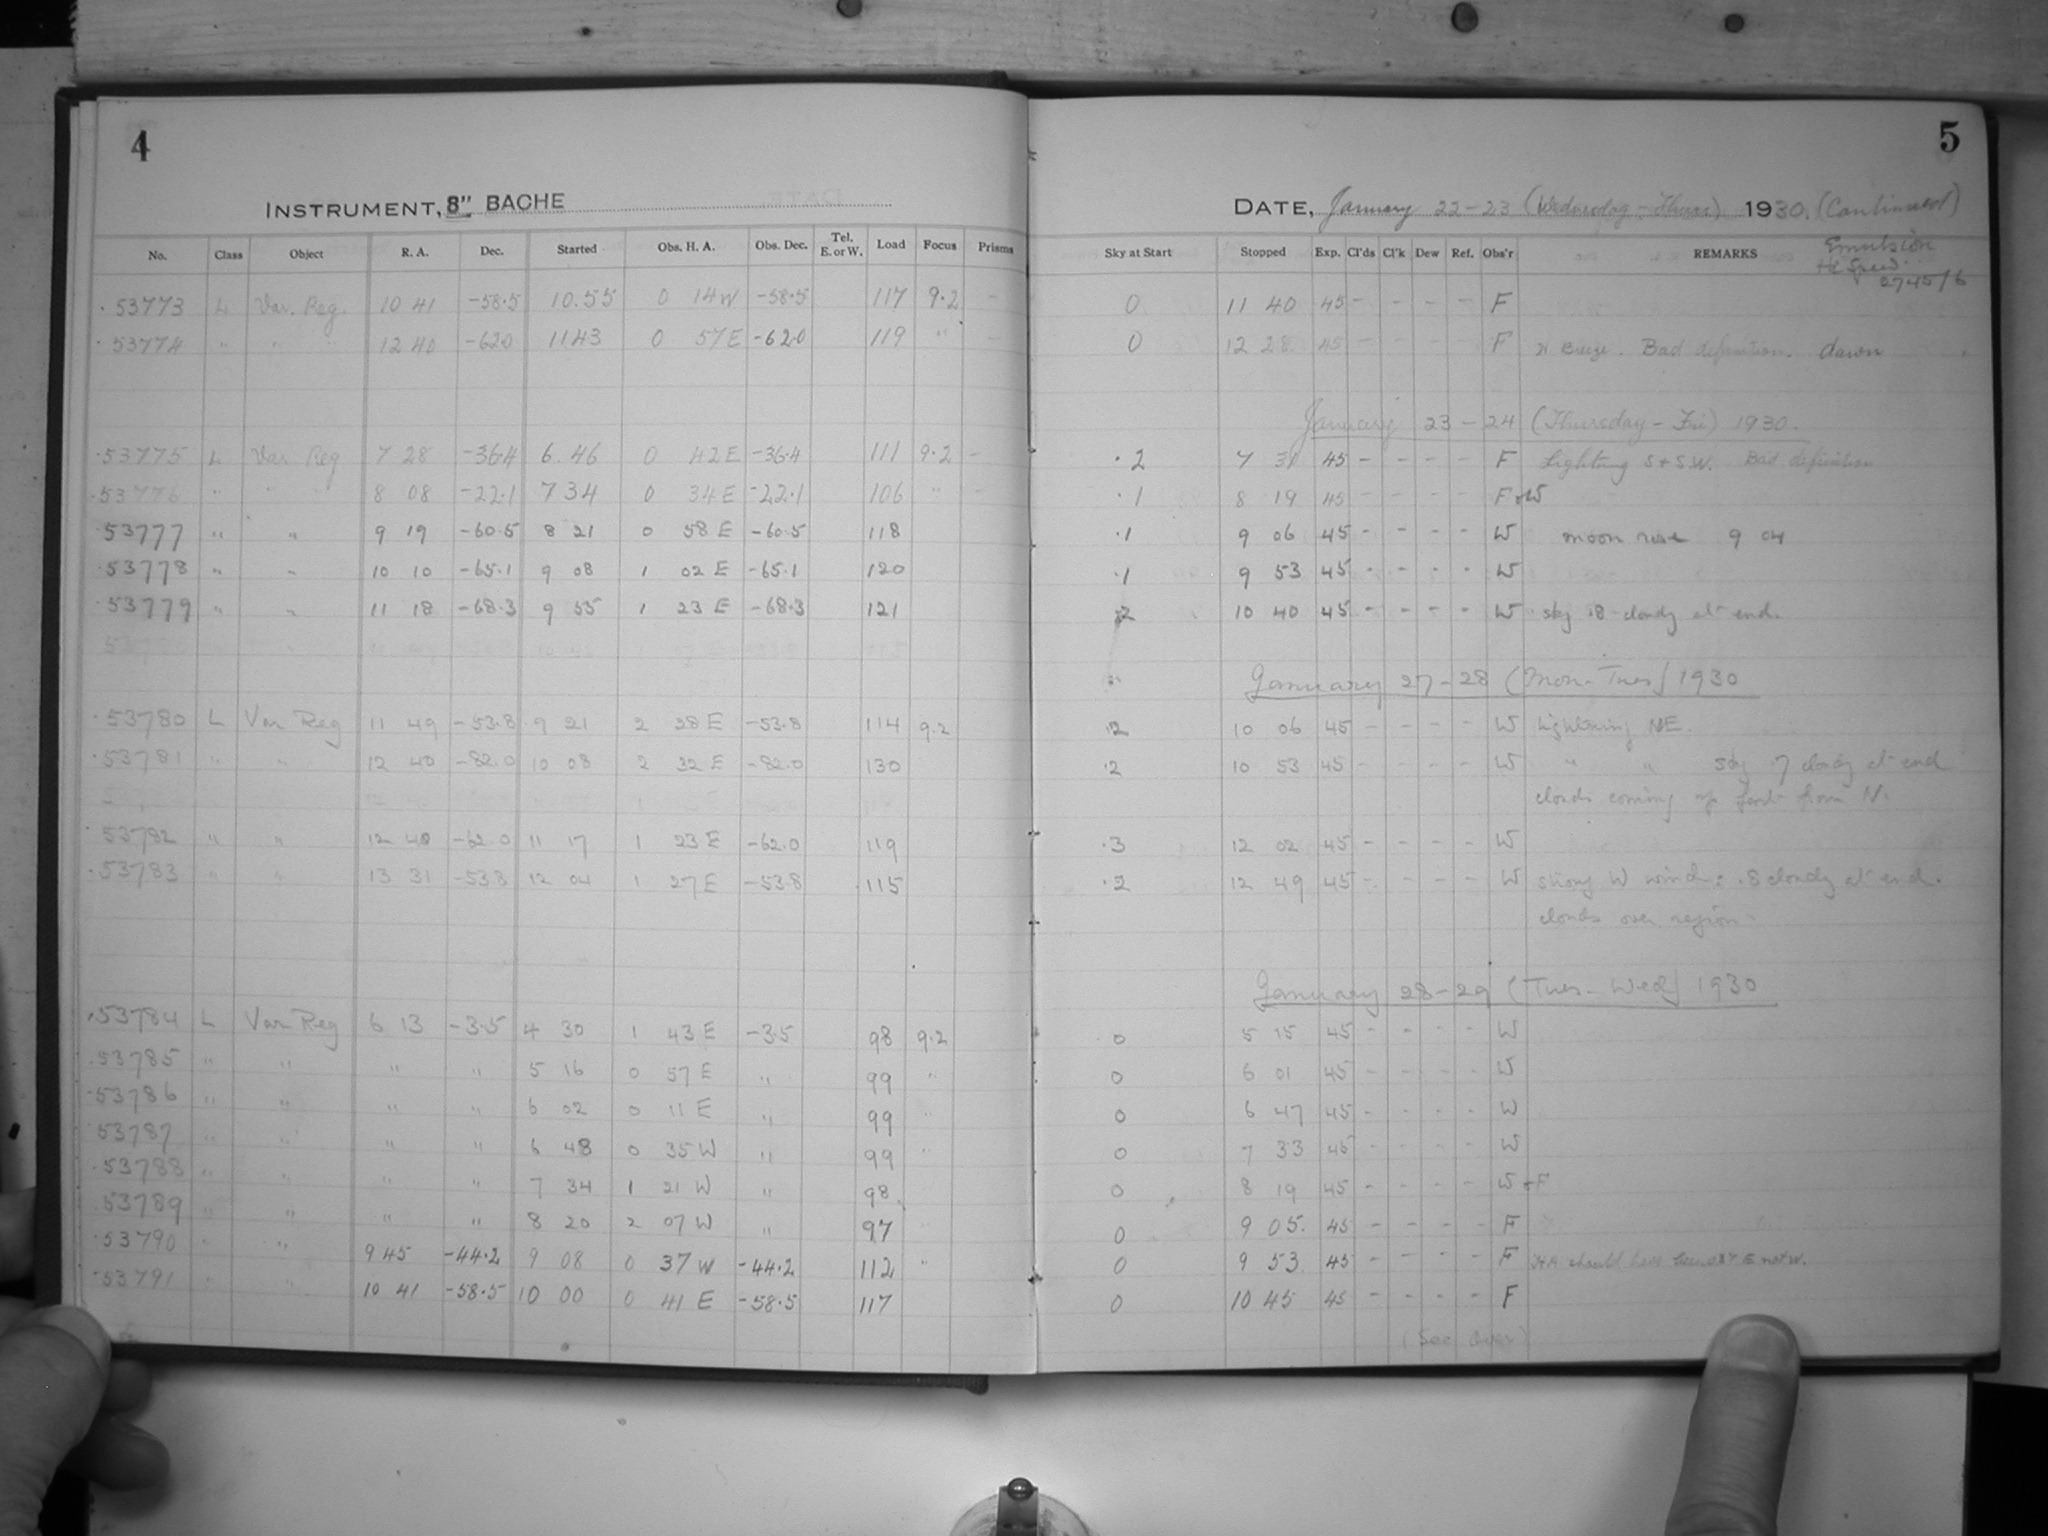 4
INSTRUMENT, 8" BACHE
No. Class Object R. A. Dec. Started Obs. H. A. Obs. Dec. Tel. E. or W. Load Focus Prisms
53773 L Var. Reg. 10 41 -58.5 10.55 0 14 W -58.5 117 9.2 -
53774 " " " 12 40 -62.0 11 43 0 57 E -62.0 119 " -
53775 L Var Reg 7 28 -36.4 6.46 0 42 E -36.4 111 9.2 -
53776 " " " 8 08 -22.1 7 34 0 34 E -22.1 106 " -
53777 " " 9 19 -60.5 8 21 0 58 E -60.5 118
53778 " " 10 10 -65.1 9 08 1 02 E -65.1 120
53779 " " 11 18 -68.3 9 55 1 23 E -68.3 121
53780 L Var Reg 11 49 -53.8 9 21 2 28 E -53.8 114 9.2
53781 " " 12 40 -82.0 10 08 2 32 E -82.0 130
53782 " " 12 40 -62.0 11 17 1 23 E -62.0 119
53783 " " 13 31 -53.8 12 04 1 27 E -53.8 115
53784 L Var Reg 6 13 -3.5 4 30 1 43 E -3.5 98 9.2
53785 " " " " 5 16 0 57 E " 99 "
53786 " " " " 6 02 0 11 E " 99 "
53787 " " " " 6 48 0 35 W " 99 "
53788 " " " " 7 34 1 21 W " 98
53789 " " " " 8 20 2 07 W " 97 "
53790 " " 9 45 -44.2 9 08 0 37 W -44.2 112 "
53791 " " 10 41 -58.5 10 00 0 41 E -58.5 117
5
DATE, January 22-23 (Wednesday - Thurs) 1930. (Continued)
Sky at Start Stopped Exp. Cl'ds Cl'k Dew Ref. Obs'r REMARKS Emulsion
Speed
2745/6
0 11 40 45 - - - - F
0 12 28 45 - - - - F Breeze. Bad definition. dawn
January 23-24 (Thursday - Fri) 1930.
.2 7 31 45 - - - - F Lightning S+SW. Bad definition
.1 8 19 45 - - - - F+W
.1 9 06 45 - - - - W moon rise 9 04
.1 9 53 45 - - - - W
.2 10 40 45 - - - - W sky .8 cloudy at end.
January 27-28 (Mon-Tues) 1930
.2 10 06 45 - - - - W lightning NE.
.2 10 53 45 - - - - W " " sky .7 cloudy at end
clouds coming up fast from N.
.3 12 02 45 - - - - W
.2 12 49 45 - - - - W strong W wind; .8 cloudy at end.
clouds over region.
January 28-29 (Tues-Wed) 1930
0 5 15 45 - - - - W
0 6 01 45 - - - - W
0 6 47 45 - - - - W
0 7 33 45 - - - - W
0 8 19 45 - - - - W+F
0 9 05. 45 - - - - F
0 9 53 45 - - - - F HA should have been E not W.
0 10 45 45 - - - - F
(See Over)